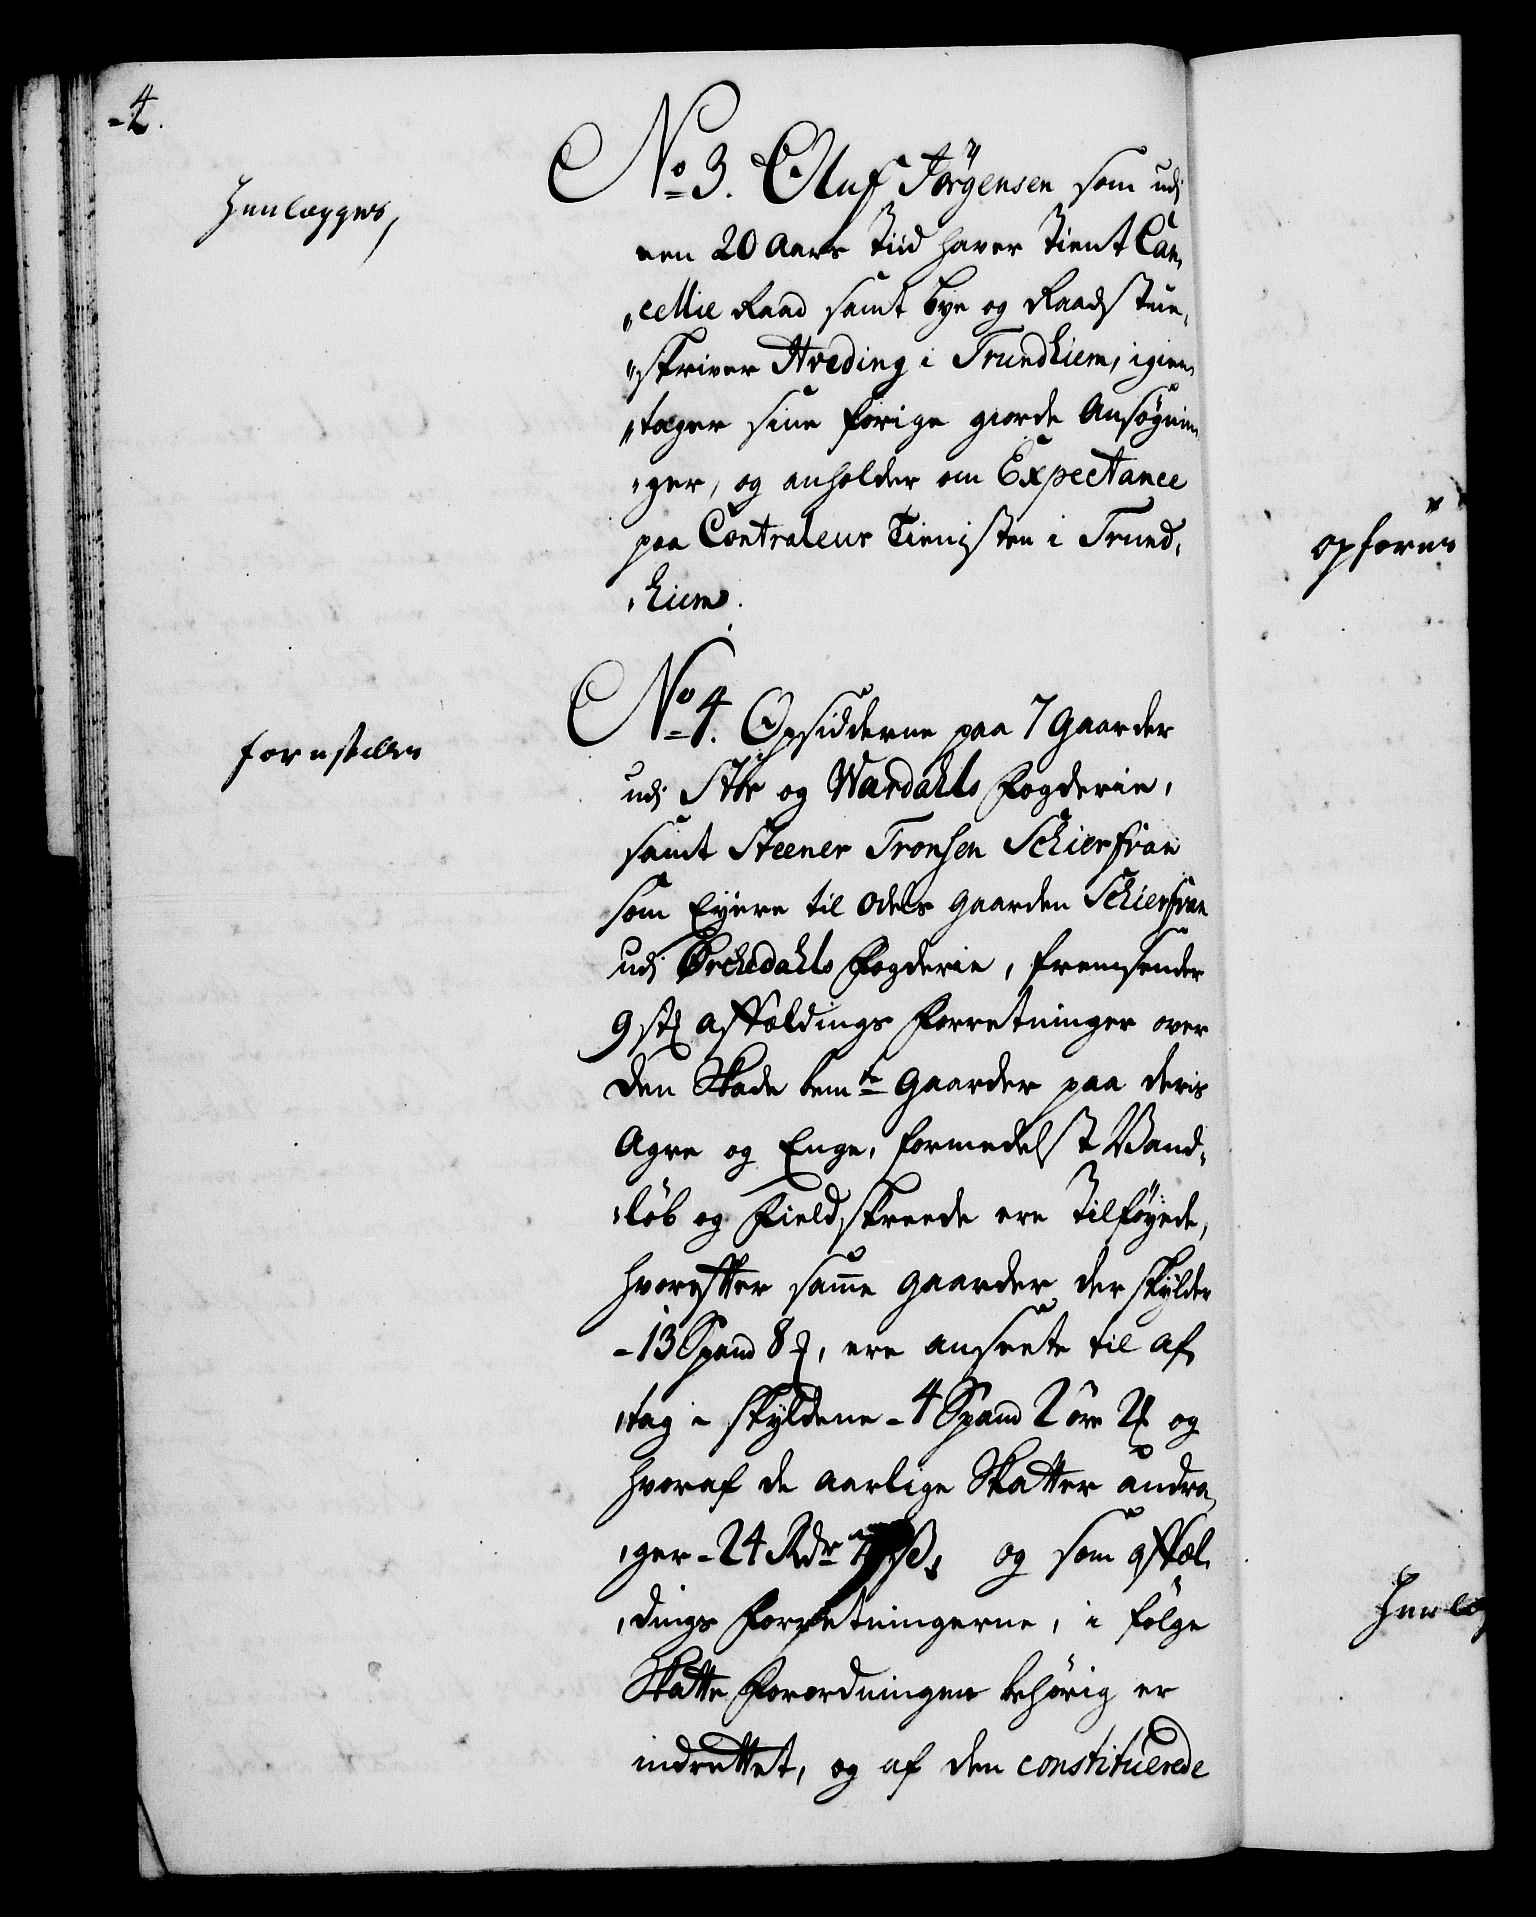 -4.
No 3. Oluf Jörgensen som udj
Henlægges,
een 20 Aars Tiid haver tient Can,
"cellie Raad samt bye og Raadstue,
"skriver Hveding i Trundhiem, igien,
"tager sine forige giorde Ansögnin,
"ger, og anholder om Expectance
paa Controleur Tienisten i Trund,
"hiem.
No 4. Opsidderne paa 7 Gaarder
forestilles
udj Stör og Wardahls Fogderie,
samt Steener Tronsen Schierfran
som Eyere til Odels Gaarden Schierfran
udj Orchedahls Fogderie, fremsender
9 stk affældings Forretninger over
den Skade bemte Gaarder paa deris
Agre og Enge, formedelst Vand,
"löb og Fieldskreede ere tilföyede,
hvorefter samme Gaarder der skylder
-13 Spand 8, ere ansette til af,
"tag i skyldene - 4 Spand 2 öre og
hvoraf de aarlige Skatter andra,
"ger - 24 Rdr og som affæl,
"dings Forretningerne, i fölge
Skatte Forordningen behörig er
indrettet, og af den constituerede
opføres